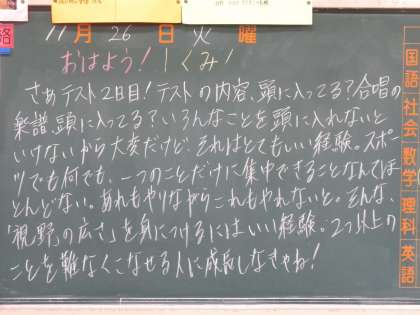 11月26日火曜
おはよう!1くみ!
さぁテスト2日目!テストの内容、頭に入ってる?合唱の
楽譜、頭に入ってる?いろんなことを頭に入れないと
いけないから大変だけど、それはとてもいい経験。スポー
ツでも何でも、一つのことだけに集中できることなんてほ
とんどない。あれもやりながらこれもやれないと。そんな、
「視野の広さ」を身につけるにはいい経験。2つ以上の
ことを難なくこなせる人に成長しなきゃね!
国語
社会
数学
理科
英語